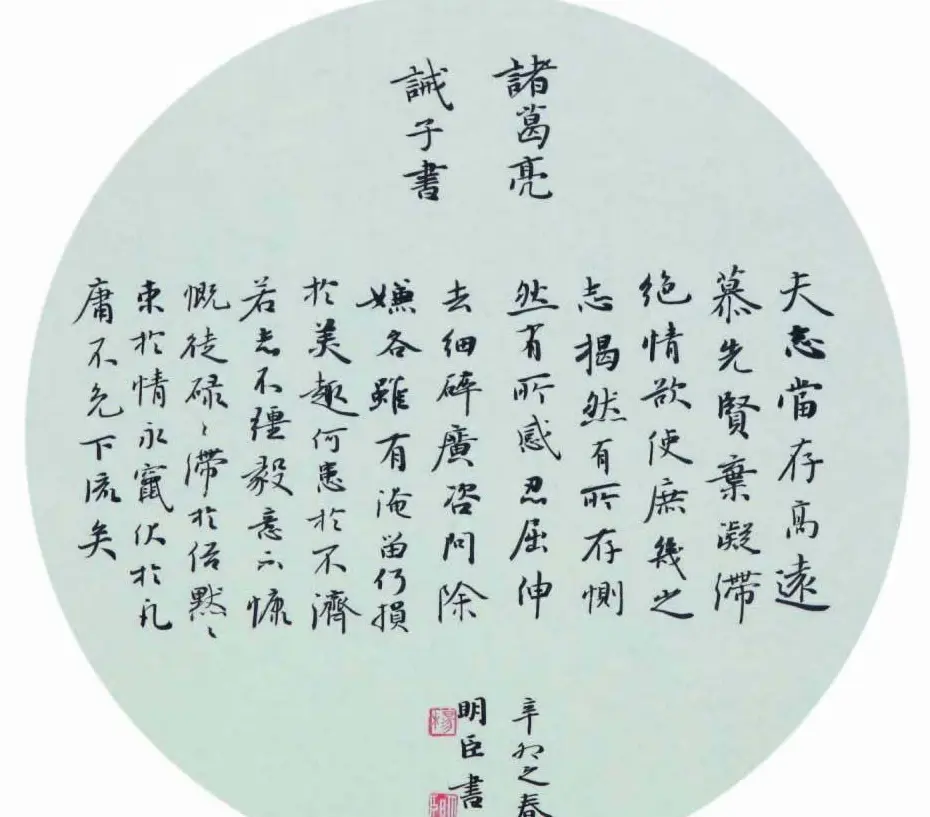 諸葛亮
誡子書
夫志當存高遠
慕先賢棄凝滯
絶情欲使庶幾之
志揭然有所存惻
然有所感忍屈伸
去細碎廣咨問除
嫌吝雖有淹留何損
於美趣何患於不濟
若志不彊毅意不慷
慨徒碌々滯於俗默々
束於情永竄伏於凡
庸不免下流矣
辛卯之春
明臣書